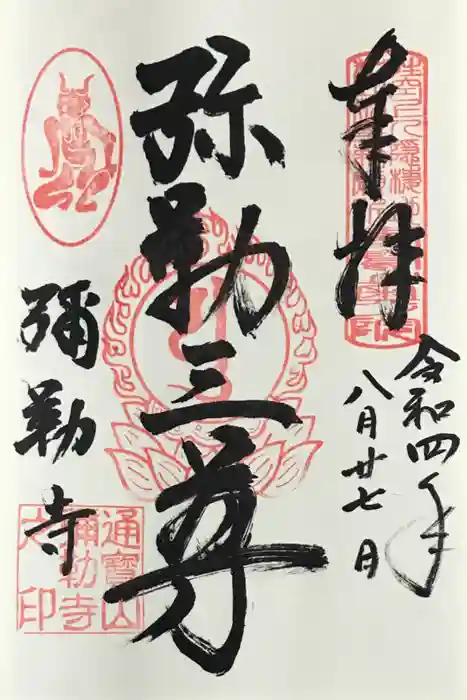 奉拝
令和四年
八月廿七日
弥勒三尊
彌勒寺
通寶山
彌勒寺
大印